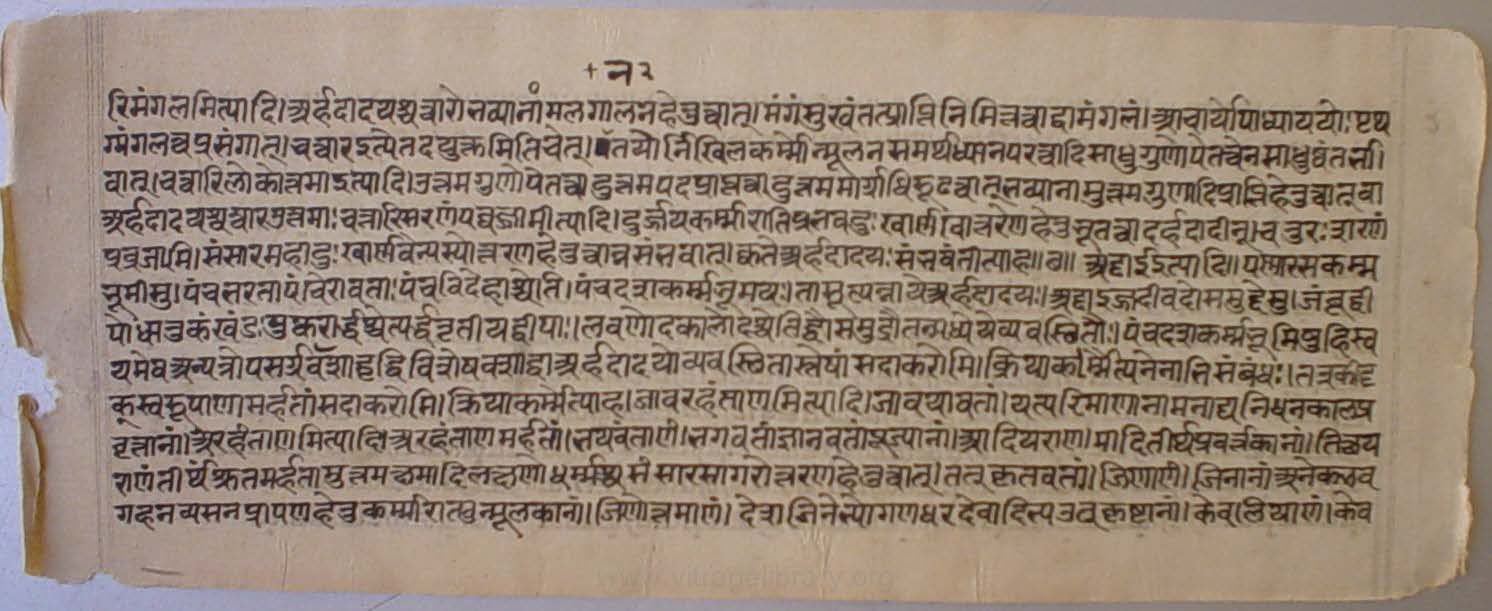 + न २
रिमंगलमित्यादि।अर्हदादयश्चत्वारो भव्यानां मलगालनहेतुत्वात्। मंगंसुखंतत्प्राप्तिनिमित्तत्वाद्वामंगलं।आचार्योपाध्याययोः पृथ
ग्मंगलत्वप्रसंगात्।चत्वारइत्येतदयुक्तमितिचेत्।तयोर्निखिलकर्म्मोन्मूलनसमर्थध्यानपरत्वादिसाधुगुणोपेतत्वेनसाधुष्वंतर्भा
वात्।चत्वारिलोकोत्तमाइत्यादि।उत्तमगुणोपेतत्वादुत्तमपदप्राप्तत्वादुत्तममार्गाधिरूढत्वात्भव्यानामुत्तमगुणादिप्राप्तिहेतुत्वात्वा
अर्हदादयश्चत्वारउत्तमाः चत्तारिसरणंपव्वज्जामीत्यादि। दुर्जयकर्म्मारातिप्रभवदुःखार्णवोत्तरेणहेतुभूतत्वादर्हदादीन्।चतुरःशरणं
प्रव्रजामि।संसारमहादुःखार्णवेन्यस्योत्तरणहेतुत्वान्नसंभवात्।क्वतेअर्हदादयःसंभवंतीत्याह॥छ॥ अढ्ढाइइत्यादि।पण्णारसकम्म
भूमीसु।पंचभरताःपंचैरावताःपंचविदेहाश्चेति।पंचदशकर्म्मभूमयः।तासूत्पन्नायेअर्हदादयः।अढ्ढाइज्जदीवदोसमुद्देसु।जंबूद्वी
पोधातुकंखंडःपुष्करार्द्धश्चेत्यर्द्धतृतीयद्वीपाः।लवणोदकालोदश्चेतिद्वौसमुद्रौतन्मध्येयेव्यवस्थितौ।पंचदशकर्म्मभूमिषुहिस्व
यमेवअन्यत्रोपसर्गवशादृद्धिविशेषवशाद्वाअर्हदादयोव्यवस्थितास्तेषांसदाकरोमि।क्रियाकर्म्मेत्यनेनाभिसंबंधः।तत्रकीदृ
क्स्वरूपाणामर्हतांसदाकरोमि।क्रियाकर्म्मेत्याह।जावरहंताणमित्यादि।जावयावतां।यत्परिमाणानामनाद्यनिधनकालप्र
वृत्तानां।अरहंताणमित्यादि।अरहंताणमर्हतां।भयवंताणं।भगवतांज्ञानवतांपूज्यानां।आदियराणं।मादितीर्थप्रवर्त्तकानां।तित्थय
राणंतीर्थंश्रुतमर्हतामुत्तमक्षमादिलक्षणोधर्म्मश्चसंसारसागरोत्तरणहेतुत्वात्।तत्कृतवतां।जिणाणं।जिनानांअनेकभव
गहनव्यसनप्रापणहेतुकर्म्मारात्युन्मूलकानां।जिणोत्तमाणं।देशजिनेभ्योगणधरदेवादिभ्यउत्कृष्टानां।केवलियाणं।केव
www.vitragelibrary.org